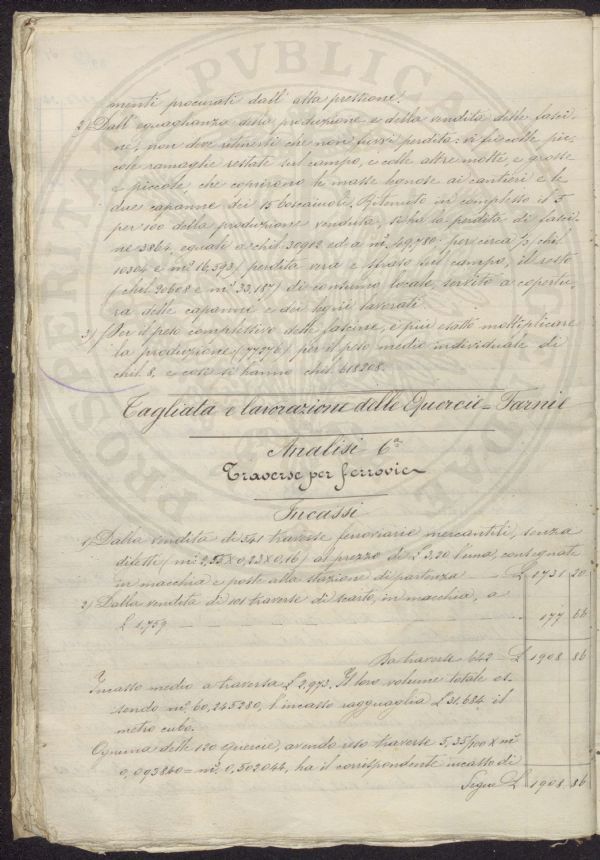 menti procurati dall' alta pressione.
2) Dall' eguaglianza della produzione e della vendita delle fasci-
ne, non deve ritenersi che non furvi perdita: vi fu colle pic-
cole ramaglie restate sul campo, e colle altre molte e grosse
e piccole che coprirono le masse legnose ai cantieri e le
due capanne dei 15 boscaiuoli. Ritenuto in complesso il 5
per 100 della produzione venduta, si ha la perdita di fasci-
ne 3864 eguali a chil. 30912 ed a m.c. 49,780: per circa 1/3 chil.
10304 e m.c. 16,593) perdita vera e strato sul campo, il resto
(chil. 20608 e m.c. 33,187) di consumo locale, servito a copertu-
ra delle capanne e dei legni lavorati.
3) Per il peso complessivo delle fascine, è più esatto moltiplicare
la produzione (77276) per il peso medio individuale di
chil. 8, e così si hanno chil. 618208.
Tagliata e lavorazione delle Quercie = Farnie
Analisi 6a
Traverse per ferrovie
Incassi
1) Dalla vendita di 541 traverse ferroviarie mercantili, senza
difetti (ml. 2,55 X 0,23 X 0,16) al prezzo di £ 3,20 l'una, consegnate
in macchia e poste alla stazione di partenza - £ 1731 20
2) Dalla vendita di 101 traverse di scarto, in macchia, a
£ 1,759 - 177 66
Da traverse 642 - £ 1908 86
Incasso medio a traversa £ 2,973. Il loro volume totale es-
sendo mc. 60,245280, l'incasso ragguaglia £ 31,684 il
metro cubo.
Ognuna delle 120 quercie, avendo reso traverse 5,35/100 X mc
0,093840 = mc. 0,502044, ha il corrispondente incasso di
Segue £ 1908 86
PROSPERITATI PVBLICAE